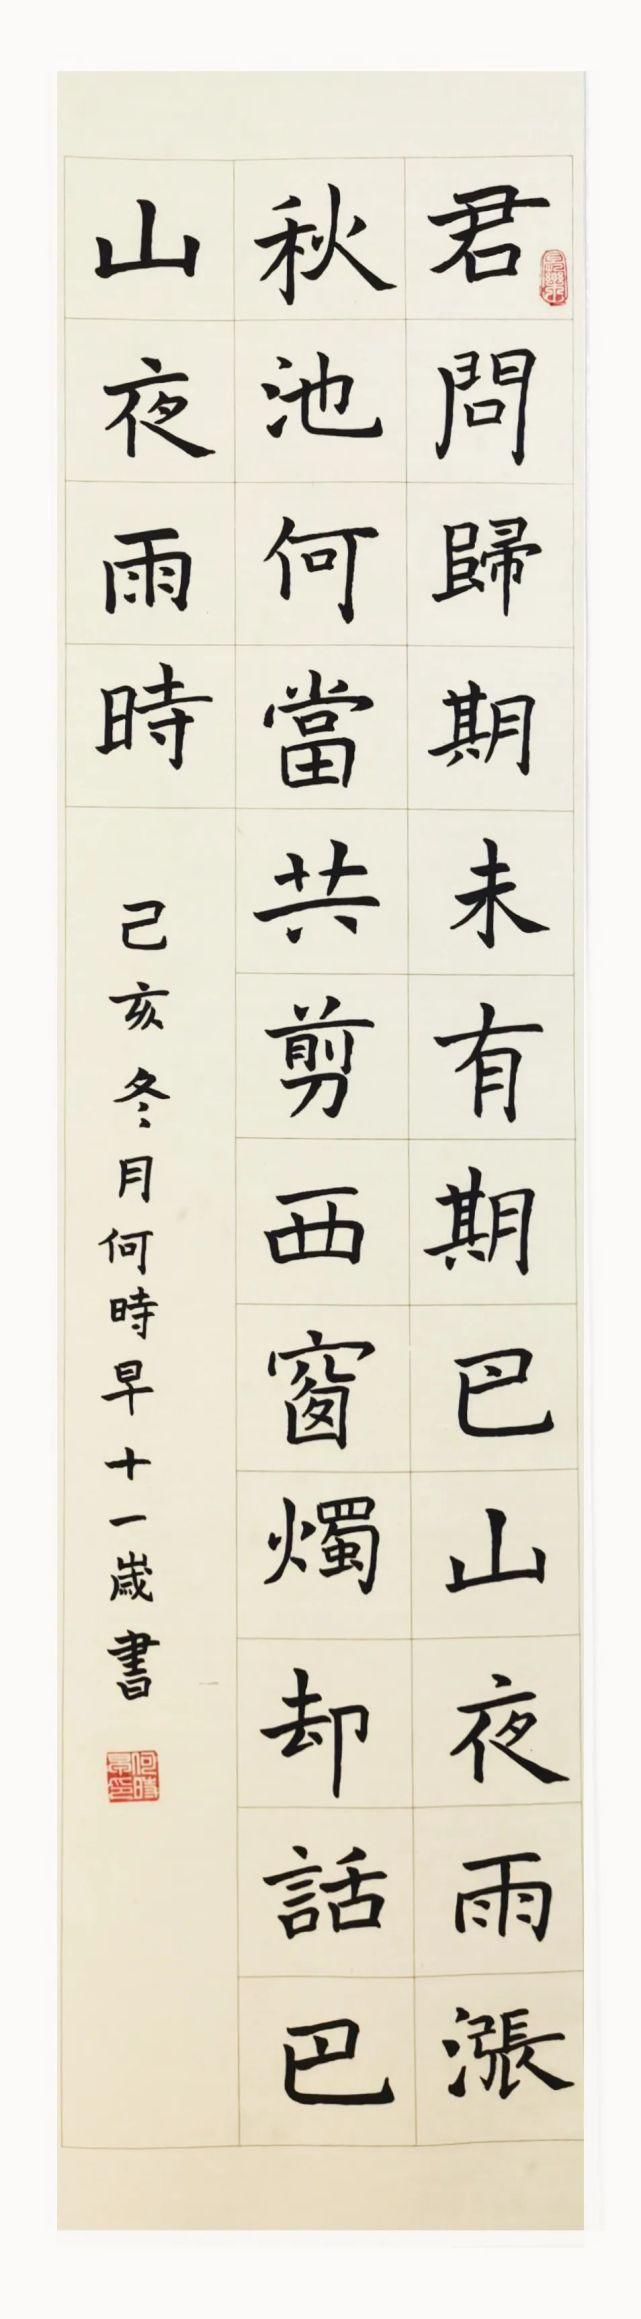 君問歸期未有期巴山夜雨漲
秋池何當共剪西窗燭却話巴
山夜雨時
己亥冬月何時早十一歲書